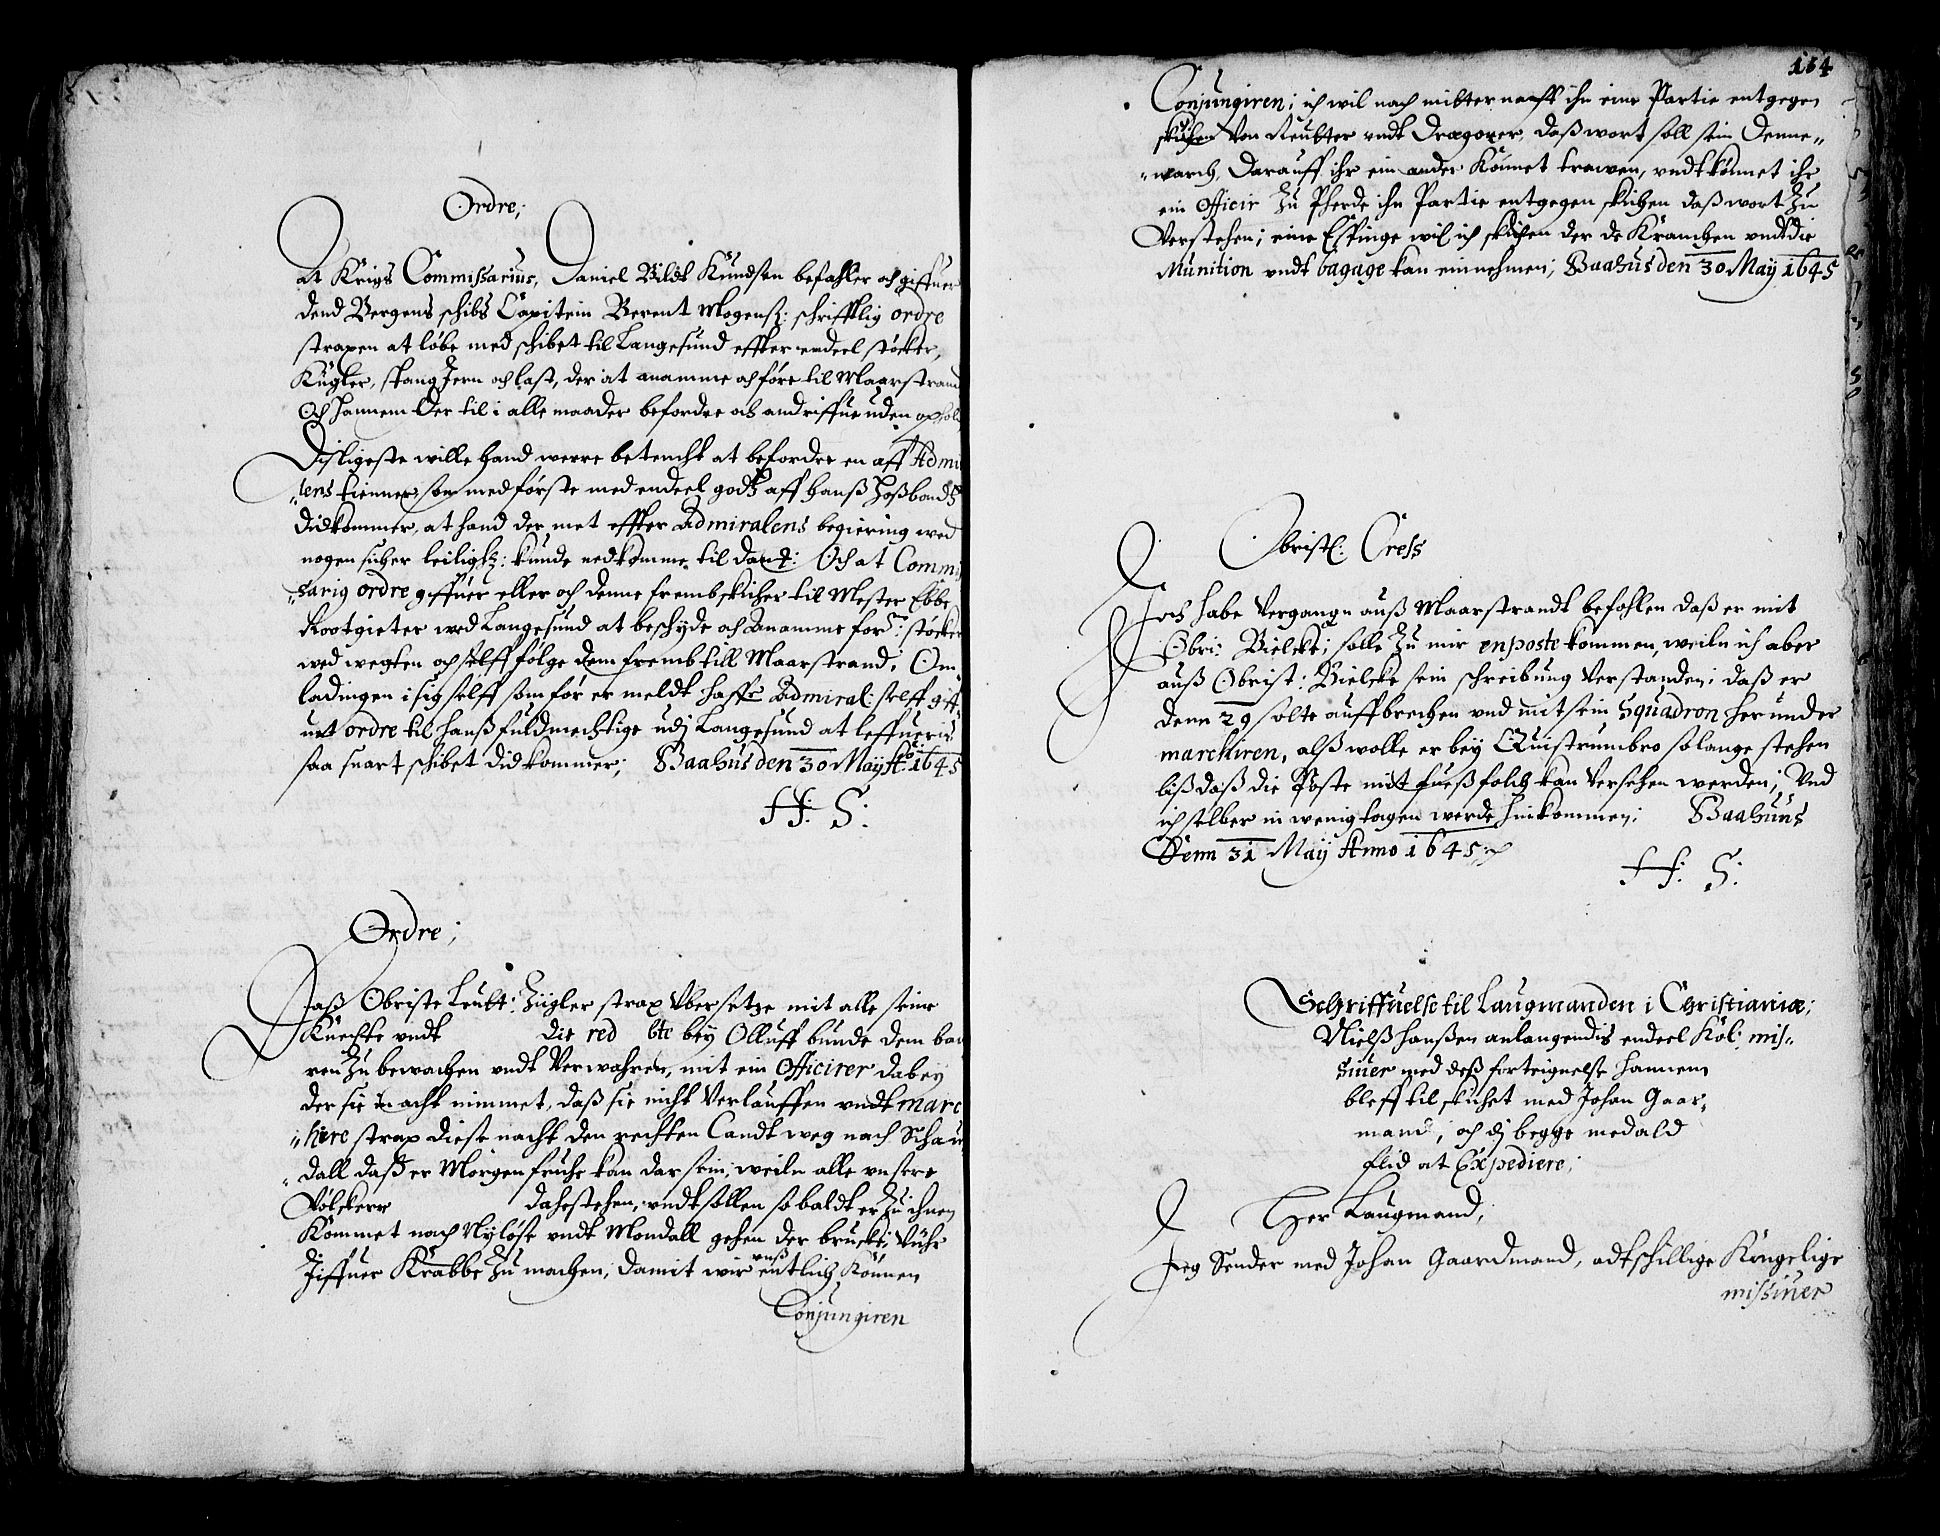 Ordre;
At Krigs Commissarius, Daniel Bildt Knudsen befahler och giffuer
dend Bergens schibs Capitein Berent Mogens: schrifftlig ordre
straxen at løbe med schibet til Langesund effter endeel støcker,
Kugler, stang Jern och last, der at anamme och føre til Maarstrand
Och hannem der til i alle maader befordre och andriffue uden ophold
Disligeste wille hand werre betencht at befordre en aff Admi
"lens tienner, som med første med endeel godtz aff hanß Hoßbonds
didkommer, at hand der met effter Admiralens begiering wed
nogen sicher leiligh: kunde nedkomme til Danm: Och at Commis
"sarius ordre giffuer eller och denne frembskicher til Mester Ebbe
Rootgieter wed Langesund at beschyde och Anamme for: støcker
wed wegten och selff følge dem fremb till Maarstrand. Om
ladingen i sig selff som før er meldt haffr Admiral: selff giff
uet ordre til hanß fuldmechtige udj Langesund at leffueris
saa snart schibet did kommer; Baahus den 30 May Ao: 1645
H: S:
Ordre;
Daß Obriste Leutt: Zügler strax Ubersetze mit alle seine
Knechte undt die red bte bey Olluff bunde dem bau
ren zu bewachen undt Verwahren, mit ein Officirer dabey
der sie in acht nimmet, daß sie nicht Verlauffen undt marc
"hire strax diese nacht den rechten Landt weg nach Schau
"dall daß er Morgen fruhe kan dar sein; weiln alle unsere
Völckere dahestehen, undt sollen so baldt er zu ihnen
Kommet nach Nyløse undt Mondall gehen der brucke Vühr
Jiffuer Krabbe zu machen; damit wir unß entlich Können
Conjungiren
164
Conjungiren; ich wil nach mitternacht ihn eine Partie entgegen
skichen Von Reutter undt Dragoner, daß wort soll sein Denne"
"march, Darauff ihr ein ander Könnet trawen, undt könnet ihr
ein Officir zu Pferde ihn Partie entgegen skichen daß wort zu
Verstehen; eine Espinge wil ich skichen der de Krancken undt die
Munition undt bagage kan einnehmen; Baahus den 30 May 1645
Obristl: Cress
Ich habe Vergangn auß Maarstrandt befohlen daß er mit
Obri: Bielcke; solle zu mir enposte kommen, weiln ich aber
auß Obrist: Bielcke sein schreibung Verstanden; daß er
denn 29 solte auffbrechen und mit sein Squadron herunder
marchiren, alß wolle er bey Quistrumbro so lange stehen
biß daß die Poste mit fueß folch kan Versehen werden; Und
ich selber in wenig tagen werde hinkommen; Baahuus
Denn 31 May Anno 1645
H: S:
Schriffuelse til Laugmanden i Christianiæ;
Nielß Hanßen anlangendis endeel Köl: mis"
siuer med deß forteignelse hannem
bleff til skichet med Johan Gaar"
mand, och dj begge med ald
flid at Expediere;
Her Laugmand,
Jeg Sender med Johan Gaardmand, adtschillige Kongelige
missiuer